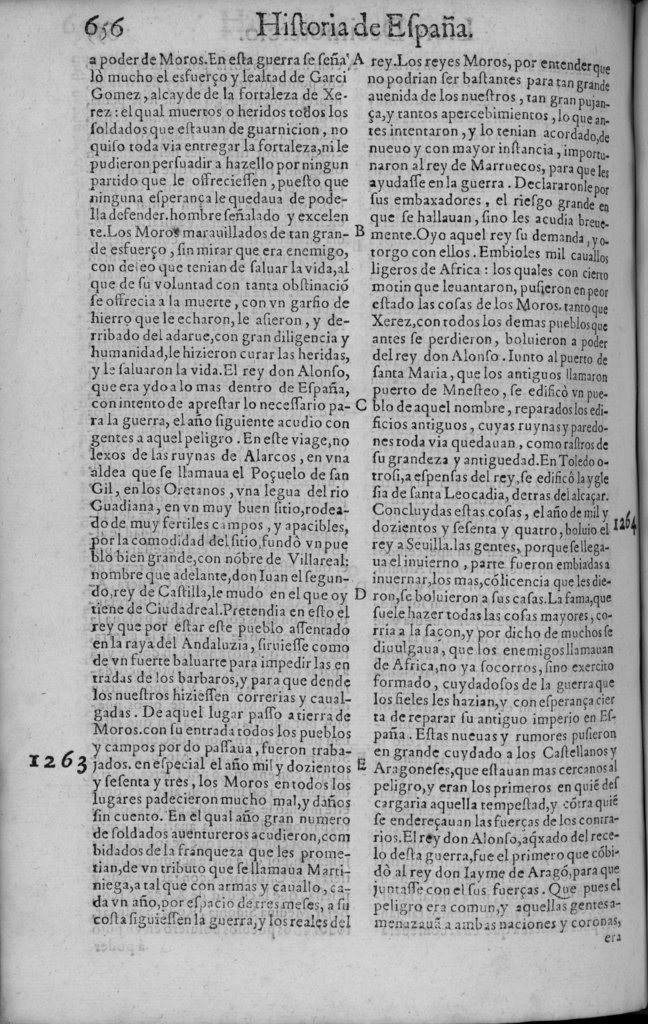 656 Historia de España.
a poder de Moros. En esta guerra se seña-
lò mucho el esfuerço y lealtad de Garci
Gomez, alcayde de la fortaleza de Xe-
rez: el qual muertos o heridos todos los
soldados que estauan de guarnicion, no
quiso toda via entregar la fortaleza, ni le
pudieron persuadir a hazello por ningun
partido que le offreciessen, puesto que
ninguna esperança le quedaua de pode-
lla defender. hombre señalado y excelen
te. Los Moros marauillados de tan gran-
de esfuerço, sin mirar que era enemigo,
con deseo que tenian de saluar la vida, al
que de su voluntad con tanta obstinació
se offrecia a la muerte, con vn garfio de
hierro que le echaron, le asieron, y de-
rribado del adarue, con gran diligencia y
humanidad, le hizieron curar las heridas,
y le saluaron la vida. El rey don Alonso,
que era ydo a lo mas dentro de España,
con intento de aprestar lo necessario pa-
ra la guerra, el año siguiente acudio con
gentes a aquel peligro. En este viage, no
lexos de las ruynas de Alarcos, en vna
aldea que se llamaua el Poçuelo de san
Gil, en los Oretanos, vna legua del rio
Guadiana, en vn muy buen sitio, rodea-
do de muy fertiles campos, y apacibles,
por la comodidad del sitio, fundò vn pue
blo bien grande, con nóbre de Villareal:
nombre que adelante, don Iuan el segun-
do, rey de Castilla, le mudo en el que oy
tiene de Ciudadreal. Pretendia en esto el
rey que por estar este pueblo assentado
en la raya del Andaluzia, siruiesse como
de vn fuerte baluarte para impedir las en
tradas de los barbaros, y para que dende
los nuestros hiziessen correrias y caual-
gadas. De aquel lugar passo a tierra de
Moros. con su entrada todos los pueblos
y campos por do passaua, fueron traba-
1263 jados. en especial el año mil y dozientos
y sesenta y tres, los Moros en todos los
lugares padecieron mucho mal, y daños
sin cuento. En el qual año gran numero
de soldados auentureros acudieron, com
bidados de la franqueza que les prome-
tian, de vn tributo que se llamaua Marti-
niega, a tal que con armas y cauallo, ca-
da vn año, por espacio de tres meses, a su
costa siguiessen la guerra, y los reales del
A rey. Los reyes Moros, por entender que
no podrian ser bastantes para tan grande
auenida de los nuestros, tan gran pujan-
ça, y tantos apercebimientos, lo que an-
tes intentaron, y lo tenian acordado, de
nueuo y con mayor instancia, importu-
naron al rey de Marruecos, para que les
ayudasse en la guerra. Declararonle por
sus embaxadores, el riesgo grande en
que se hallauan, sino les acudia breue-
B mente. Oyo aquel rey su demanda, y o-
torgo con ellos. Embioles mil cauallos
ligeros de Africa: los quales con cierto
motin que leuantaron, pusieron en peor
estado las cosas de los Moros. tanto que
Xerez, con todos los demas pueblos que
antes se perdieron, boluieron a poder
del rey don Alonso. Iunto al puerto de
santa Maria, que los antiguos llamaron
puerto de Mnesteo, se edificò vn pue-
C blo de aquel nombre, reparados los edi-
ficios antiguos, cuyas ruynas y paredo-
nes toda via quedauan, como rastros de
su grandeza y antiguedad. En Toledo o-
trosi, a espensas del rey, se edificò la ygle
sia de santa Leocadia, detras del alcaçar.
Concluydas estas cosas, el año de mil y
dozientos y sesenta y quatro, boluio el 1264
rey a Seuilla. las gentes, porque se llega-
ua el inuierno, parte fueron embiadas a
inuernar, los mas, có licencia que les die-
D ron, se boluieron a sus casas. La fama, que
suele hazer todas las cosas mayores, co-
rria a la saçon, y por dicho de muchos se
diuulgaua, que los enemigos llamauan
de Africa, no ya socorros, sino exercito
formado, cuydadosos de la guerra que
los fieles les hazian, y con esperança cier
ta de reparar su antiguo imperio en Es-
paña. Estas nueuas y rumores pusieron
en grande cuydado a los Castellanos y
E Aragoneses, que estauan mas cercanos al
peligro, y eran los primeros en quié des
cargaria aquella tempestad, y cótra quié
se endereçauan las fuerças de los contra-
rios. El rey don Alonso, aqxado del rece-
lo desta guerra, fue el primero que cóbi-
dò al rey don Iayme de Aragó, para que
juntasse con el sus fuerças. Que pues el
peligro era comun, y aquellas gentes a-
menazauã a ambas naciones y coronas,
era